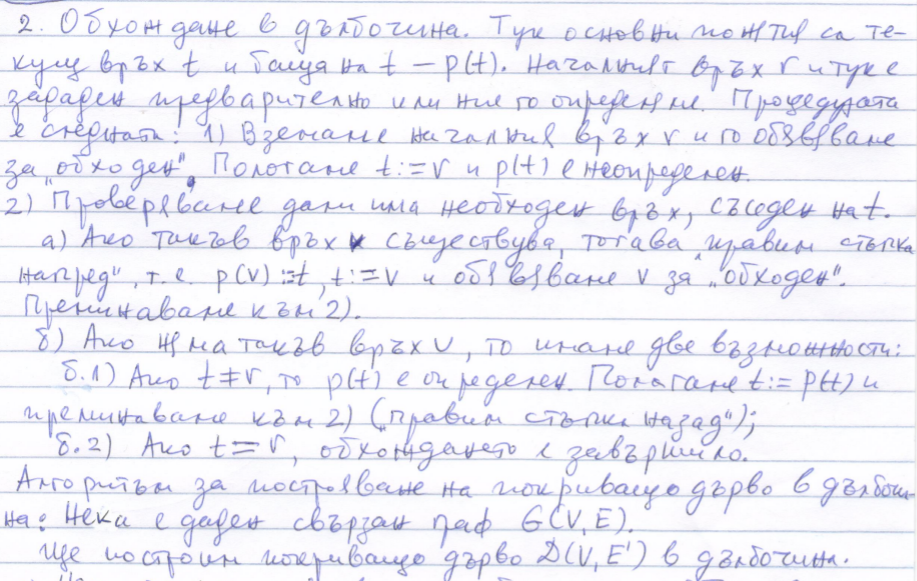 2. Обхождане в дълбочина. Тук основни понятия са те-
кущ връх t и баща на t – p(t). Началният връх r и тук е
зададен предварително или ние го определяме. Процедурата
е следната: 1) Вземаме началния връх r и го обявяваме
за „обходен". Полагаме t:=r и p(t) е неопределен.
2) Проверяваме дали има необходен връх, съседен на t.
а) Ако такъв връх v съществува, тогава „правим стъпка
напред", т.е. p(v):=t, t:=v и обявяваме v за „обходен".
Преминаваме към 2).
б) Ако няма такъв връх v, то имаме две възможности:
б.1) Ако t≠r, то p(t) е определен. Полагаме t:=p(t) и
преминаваме към 2) („правим стъпка назад");
б.2) Ако t=r, обхождането е завършило.
Алгоритъм за построяване на покриващо дърво в дълбочи-
на: Нека е даден свързан граф G(V,E).
Ще построим покриващо дърво D(V,E') в дълбочина.